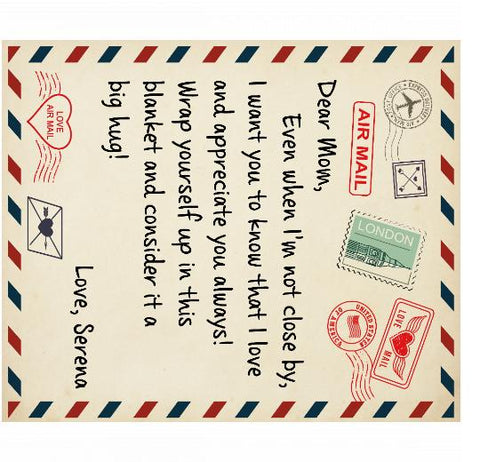 EXPRESS DELIVERY
AIR MAIL
LONDON
LOVE
MAIL
UNITED STATES
OF AMERICA
Dear Mom,
Even when I'm not close by,
I want you to know that I love
and appreciate you always!
Wrap yourself up in this
blanket and consider it a
big hug!
Love, Serena
LOVE
AIR MAIL